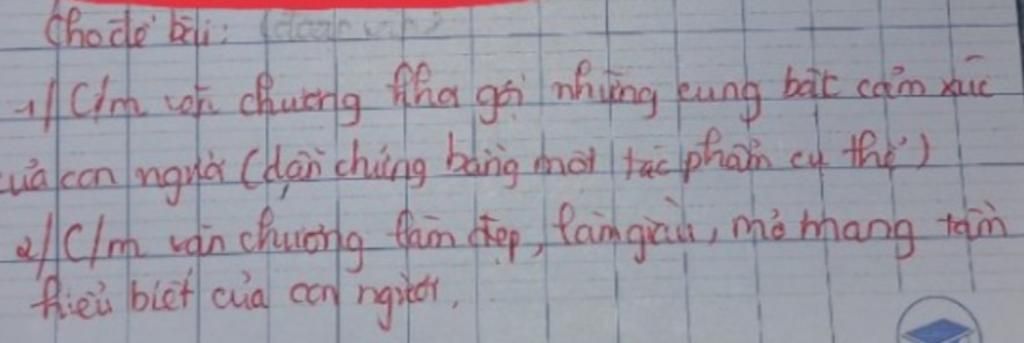 Cho đề bài: (đoạn văn)
1/ C/m văn chương khơi gợi những cung bậc cảm xúc
của con người (dẫn chứng bằng một tác phẩm cụ thể)
2/ C/m văn chương làm đẹp, làm giàu, mở mang tầm
hiểu biết của con người.